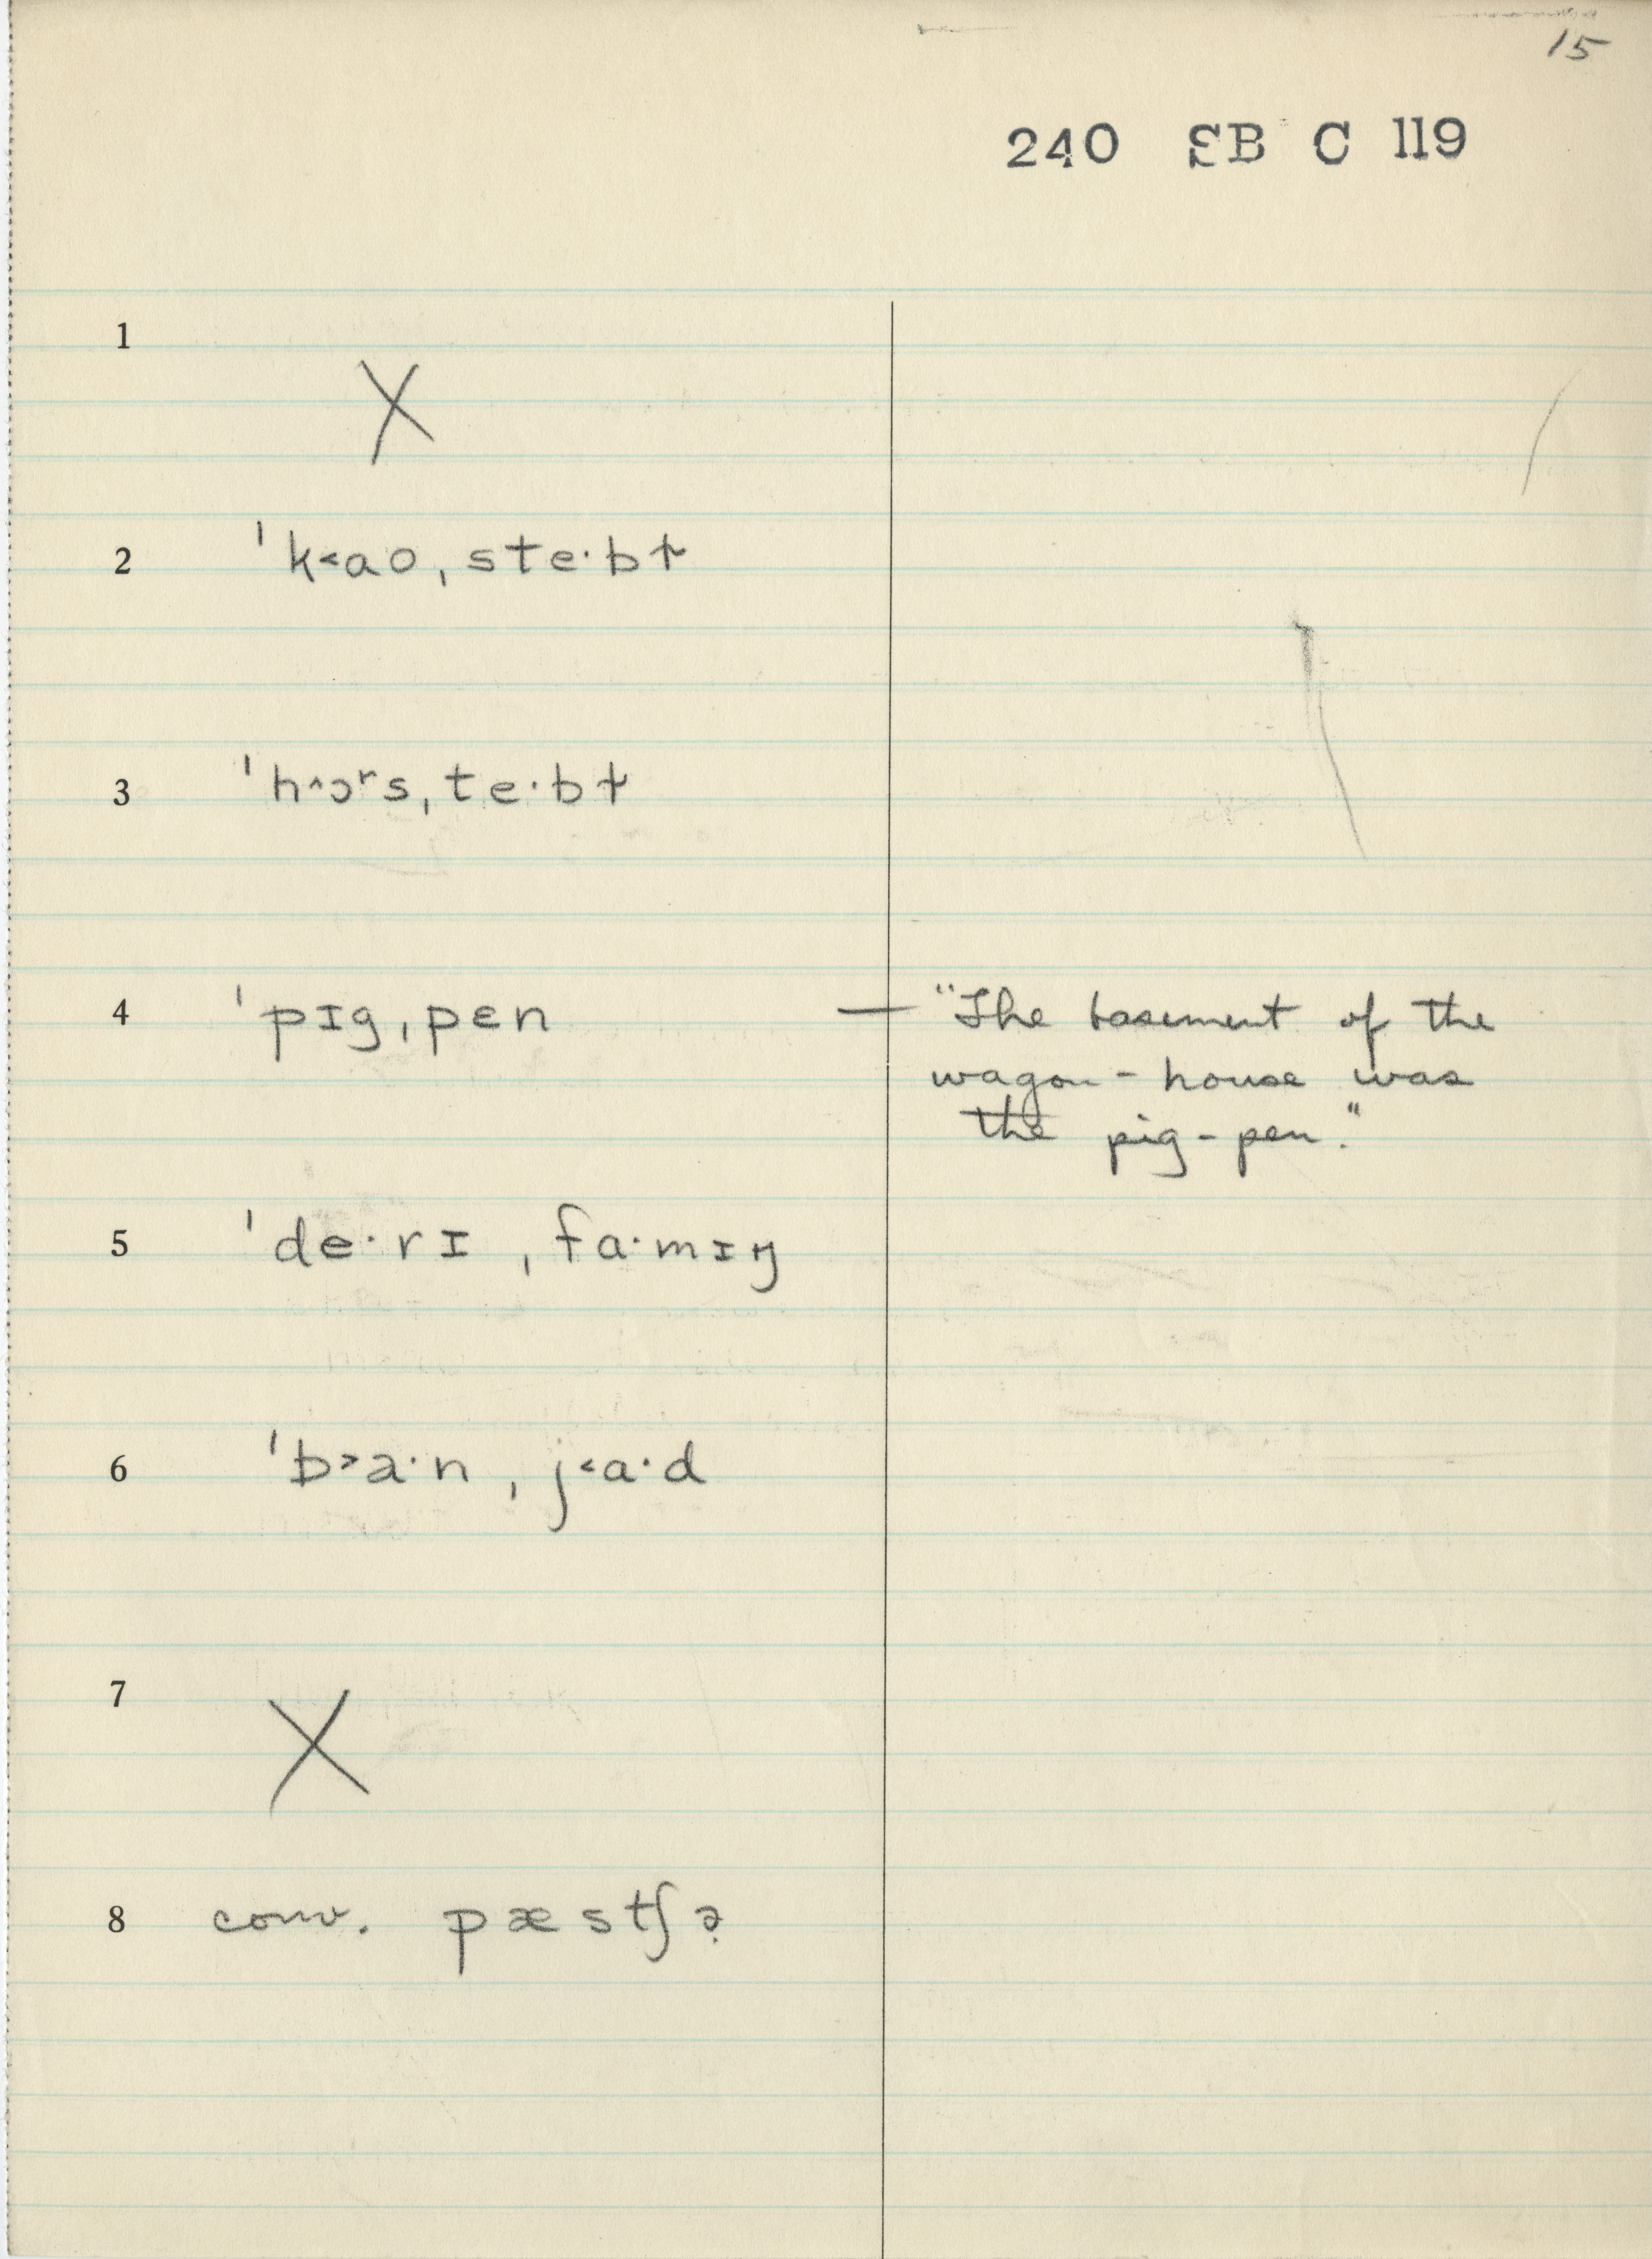 15
240 SB C 119
1
X
2 ˈk˂aoˌste·bɫ
3 ˈh^ɔʳsˌte·bɫ
4 ˈpɪgˌpɛn — "The basement of the
wagon-house was
the pig-pen."
5 ˈde·rɪ ˌfa·mɪŋ
6 ˈb˃a·n ˌj˂a·d
7
X
8 conv. pæstʃə̣